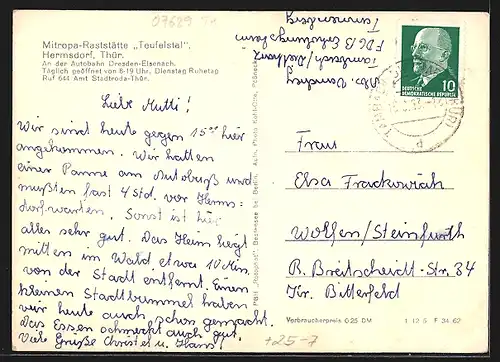 07629
Mitropa-Raststätte „Teufelstal",
Hermsdorf, Thür.
An der Autobahn Dresden-Eisenach.
Täglich geöffnet von 8-19 Uhr, Dienstag Ruhetag
Ruf 644 Amt Stadtroda-Thür.
Liebe Mutti!
Wir sind heute gegen 15°° hier
angekommen. Wir hatten
einer Panne am Autobuß und
mußten fast 4 Std. vor Herms-
dorf warten. Sonst ist hier
alles sehr gut. Das Heim liegt
mitten im Wald etwa 10 Min.
von der Stadt entfernt. Einen
kleinen Stadtbummel haben
wir heute auch schon gemacht.
Das Essen schmeckt auch gut.
Viele Grüße Christel u. Hans!
FDGB Erholungsheim
10
DEUTSCHE
DEMOKRATISCHE REPUBLIK
Frau
Elsa Frackowiak
Wolfen/Steinfurth
R. Breitscheidt-Str. 34
Kr. Bitterfeld
Verbraucherpreis 0.25 DM
1 12 5 F 34 62
+25-7